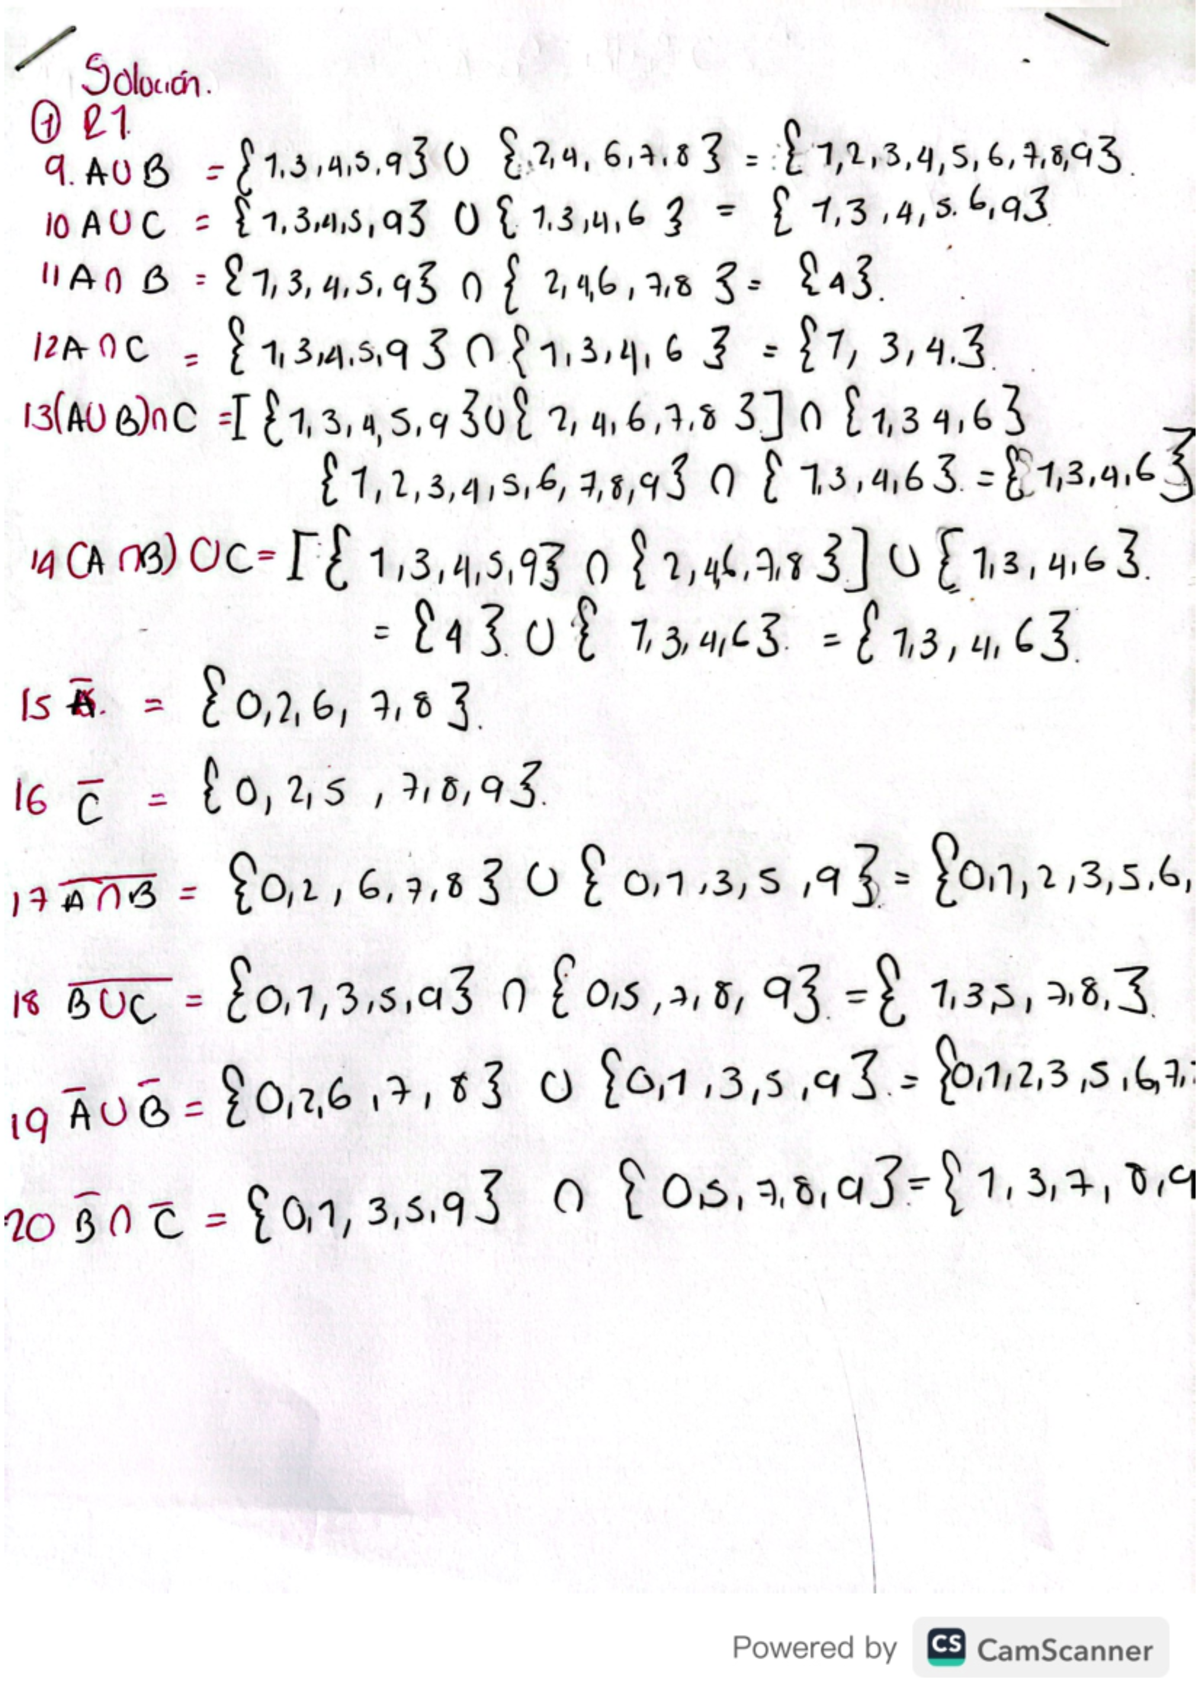 Solución.
① R1
9. A∪B = {1,3,4,5,9} ∪ {2,4,6,7,8} = {1,2,3,4,5,6,7,8,9}.
10 A∪C = {1,3,4,5,9} ∪ {1,3,4,6} = {1,3,4,5,6,9}
11 A∩B = {1,3,4,5,9} ∩ {2,4,6,7,8} = {4}.
12 A∩C = {1,3,4,5,9} ∩ {1,3,4,6} = {1,3,4.}
13 (A∪B)∩C = [{1,3,4,5,9}∪{2,4,6,7,8}] ∩ {1,3 4,6}
{1,2,3,4,5,6,7,8,9} ∩ {1,3,4,6}. = {1,3,4,6}
14 (A∩B)∪C = [{1,3,4,5,9} ∩ {2,4,6,7,8}] ∪ {1,3,4,6}.
= {4} ∪ {1,3,4,6}. = {1,3,4,6}.
15 A̅. = {0,2,6,7,8}.
16 C̅ = {0,2,5,7,8,9}.
17 A̅∩̅B̅ = {0,2,6,7,8} ∪ {0,1,3,5,9}. = {0,1,2,3,5,6,
18 B̅∪̅C̅ = {0,1,3,5,9} ∩ {0,5,7,8,9}. = {1,3 5,7,8,}.
19 A̅∪B̅ = {0,2,6,7,8} ∪ {0,1,3,5,9}. = {0,1,2,3,5,6,7,
20 B̅∩C̅ = {0,1,3,5,9} ∩ {0,5,7,8,9} = {1,3,7,8,9
Powered by CS CamScanner